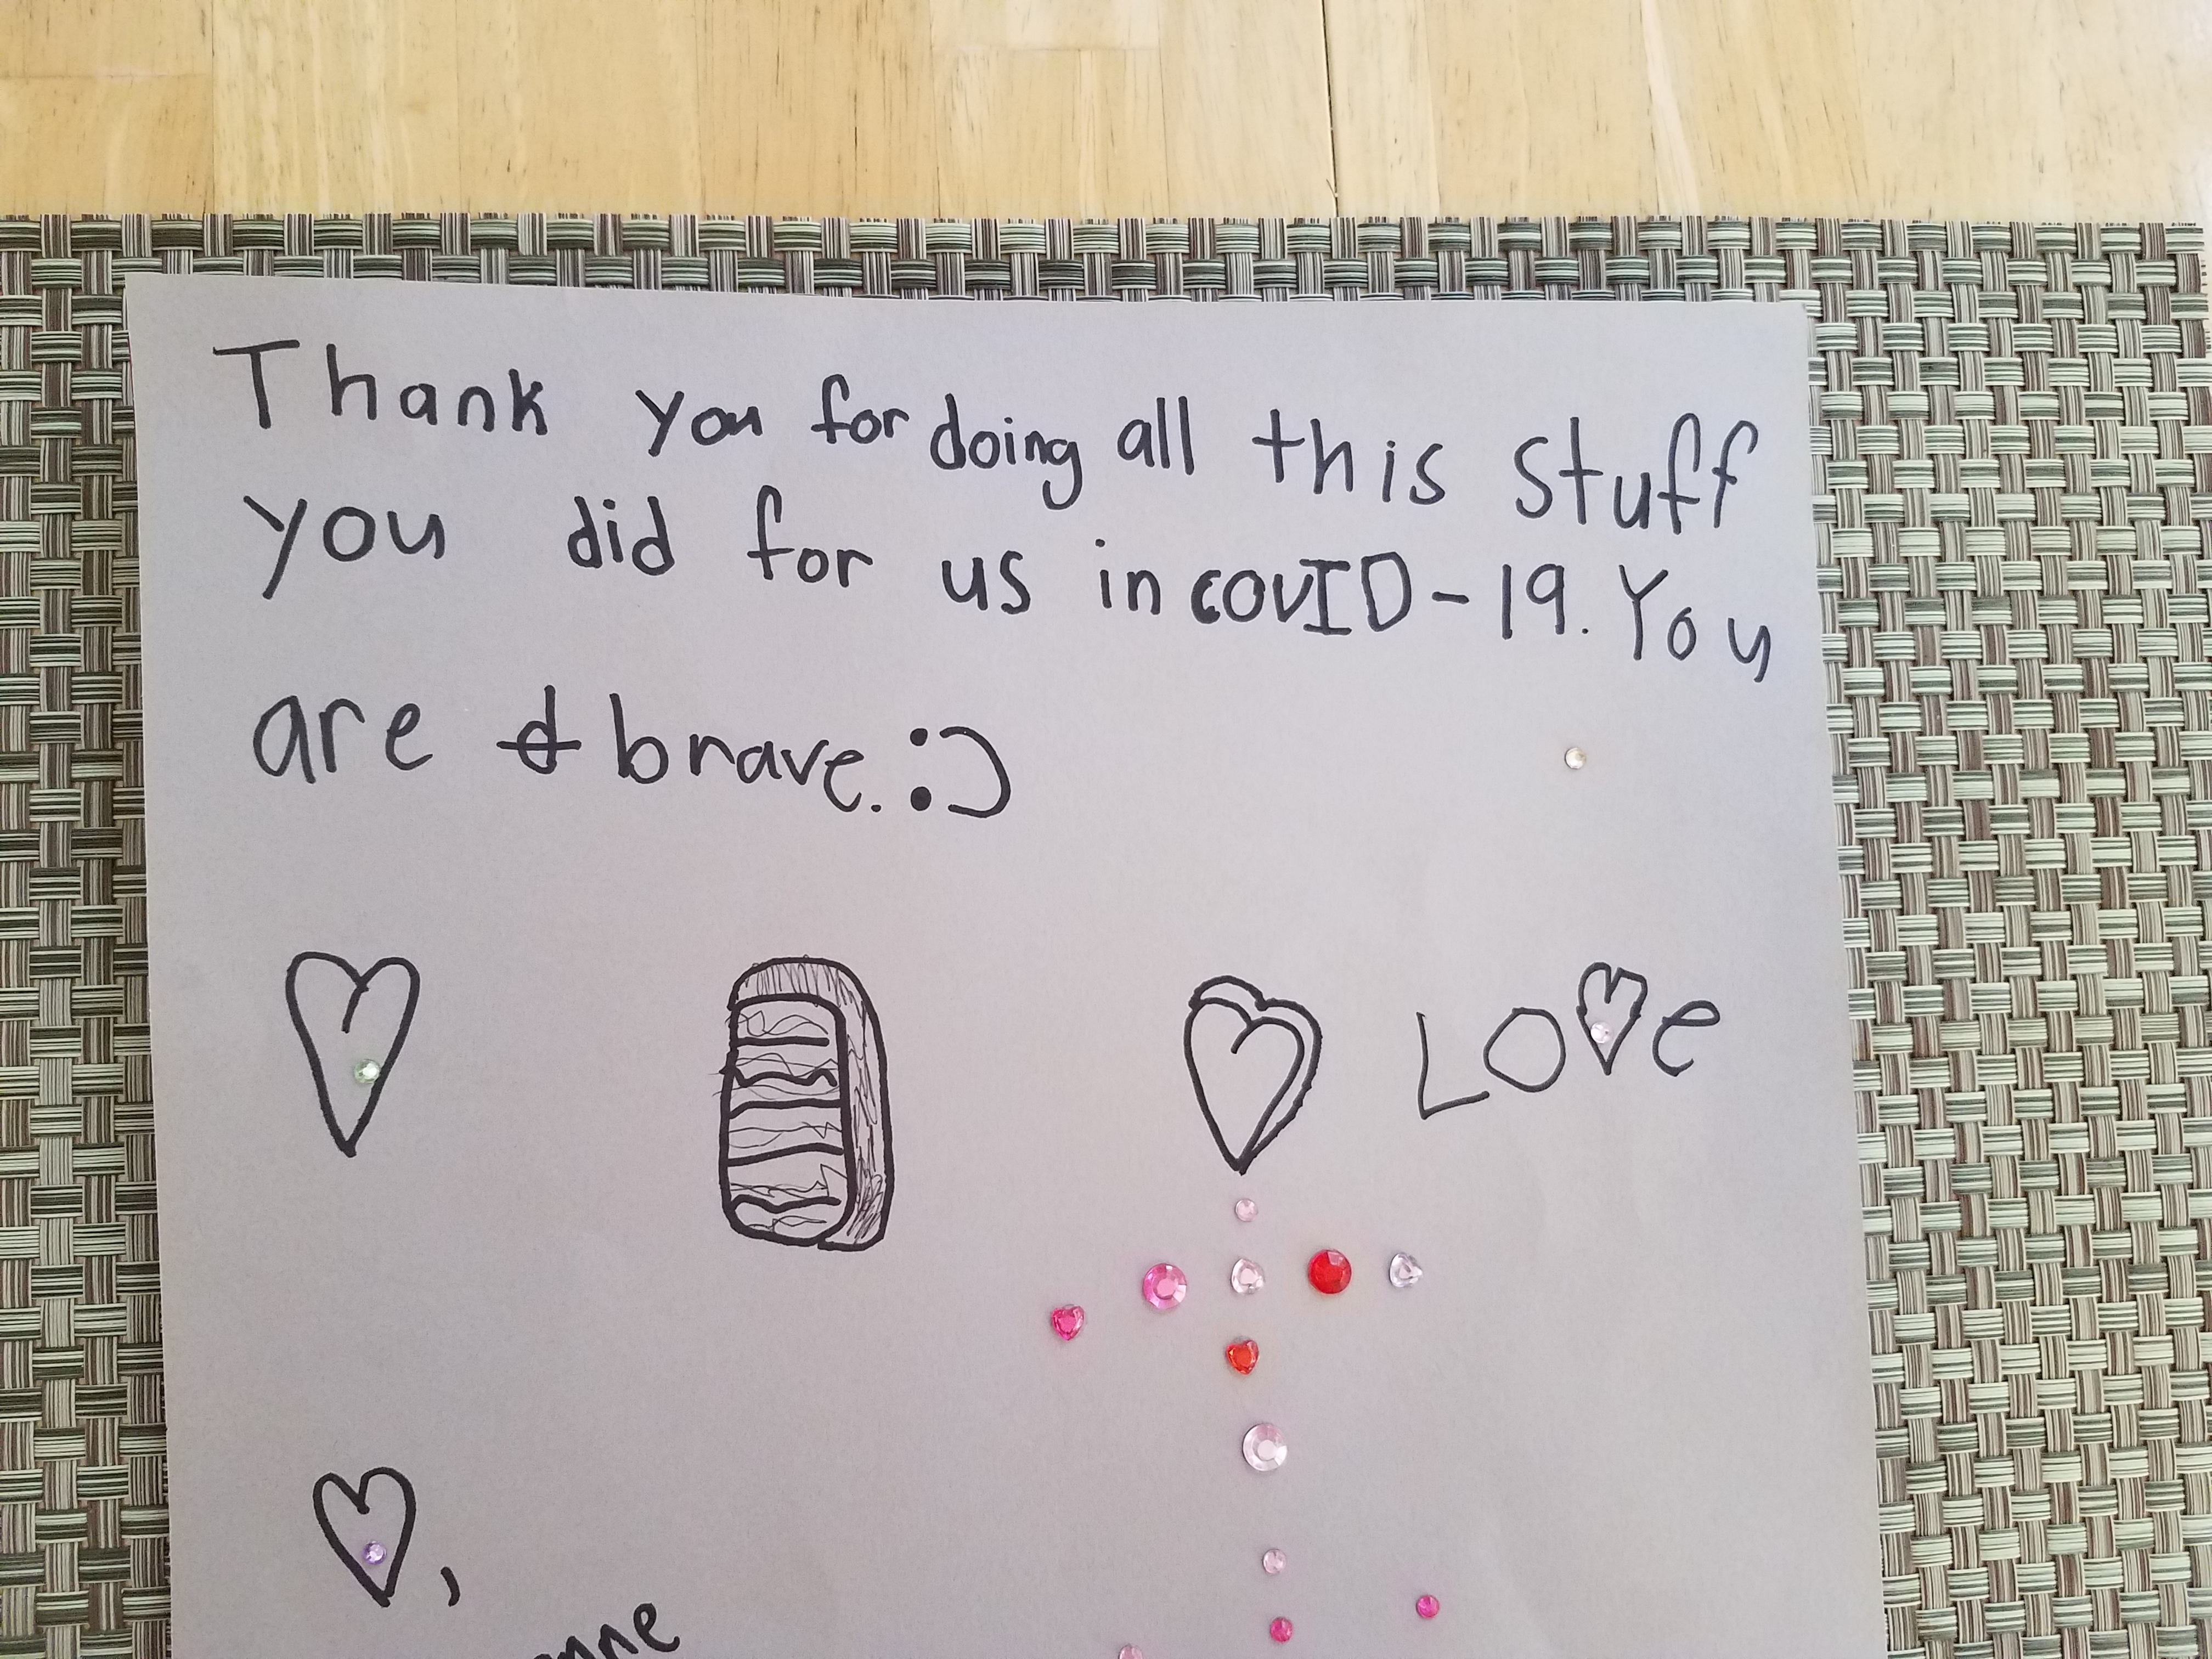 Thank you for doing all this stuff
you did for us in COVID-19. You
are brave. :)
LOVe
,